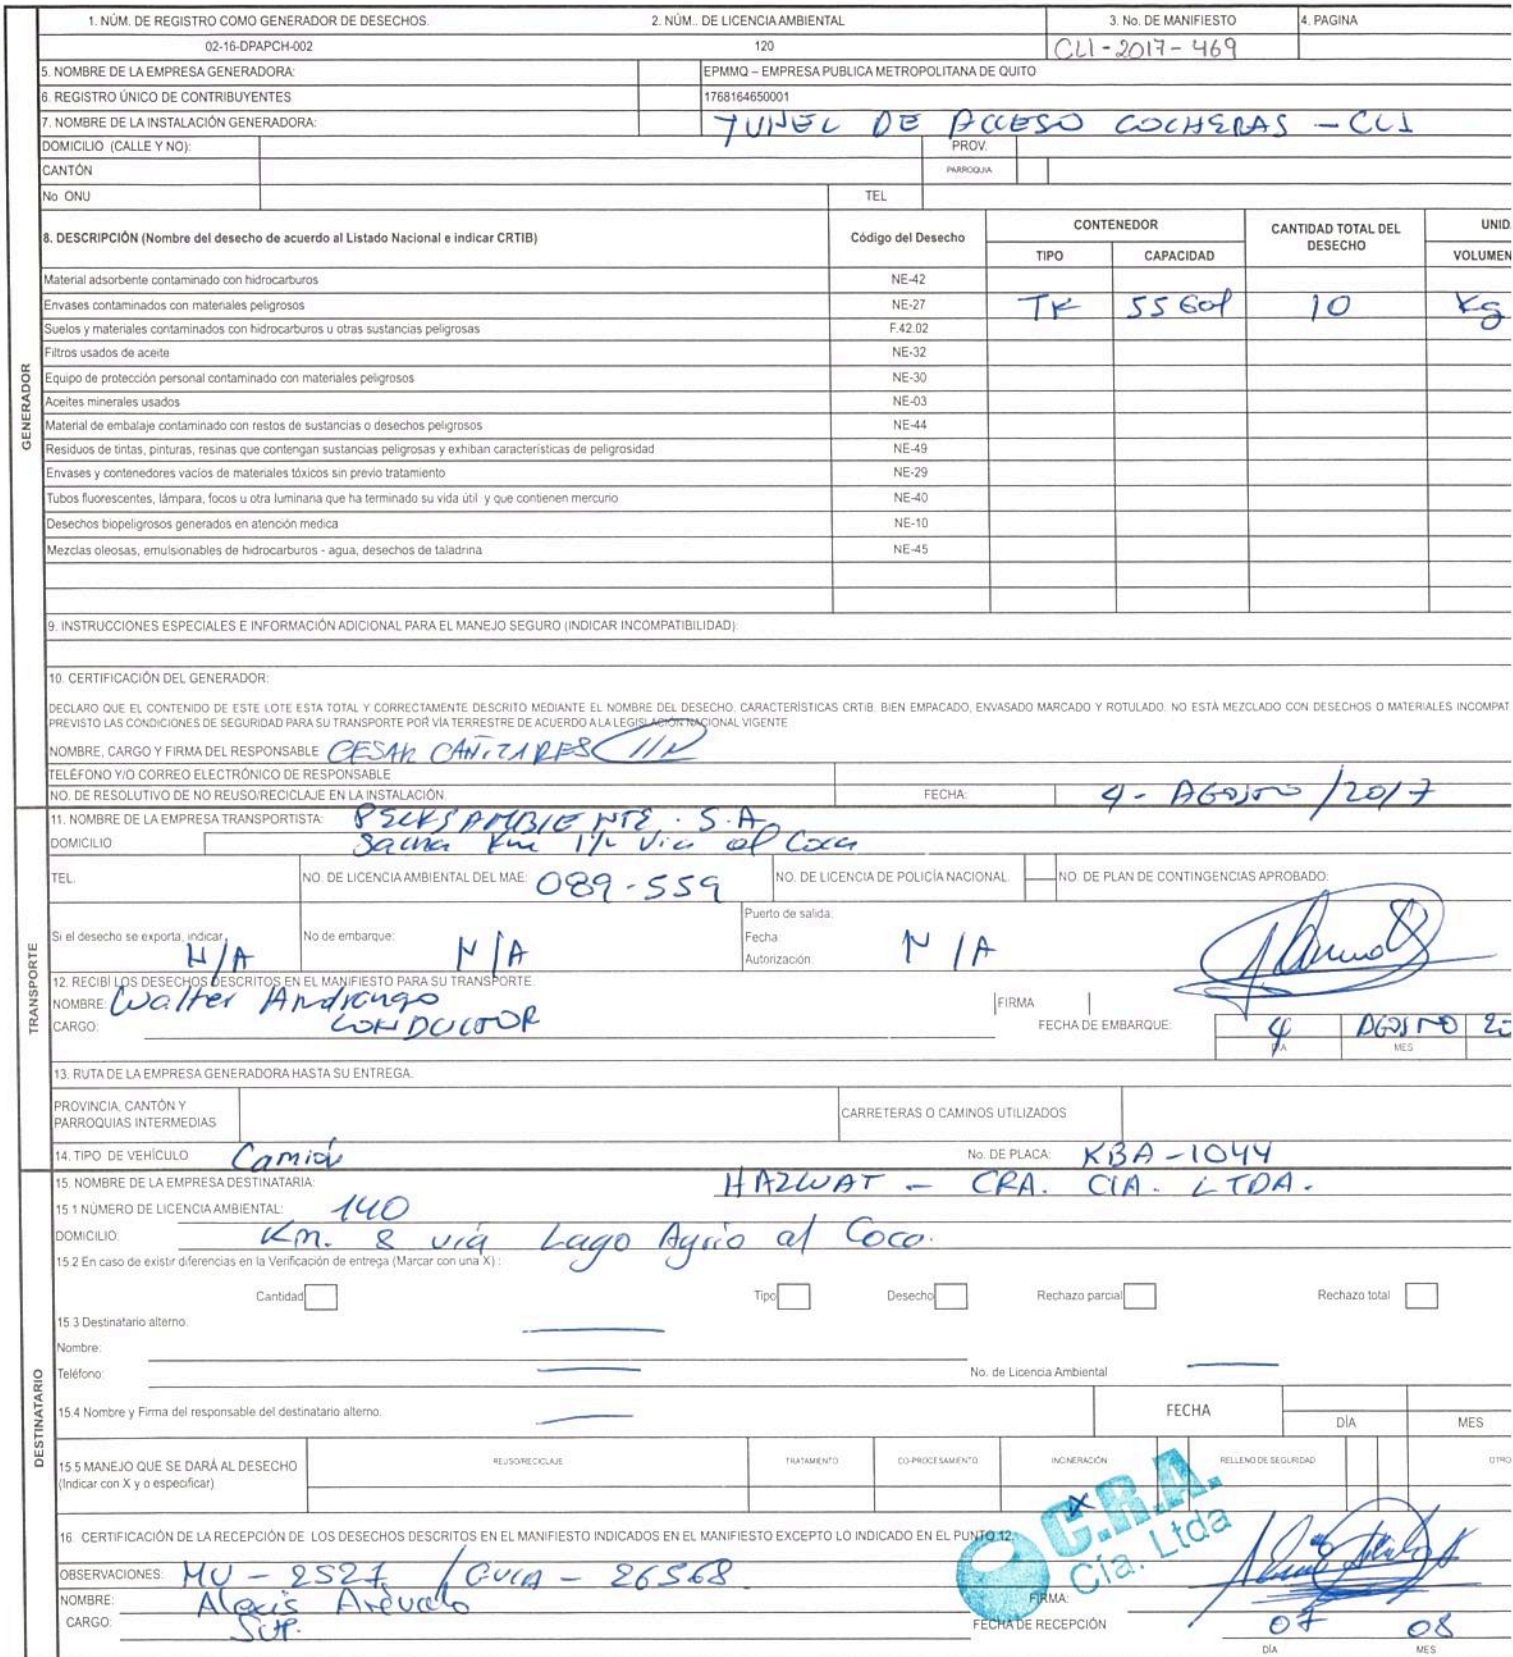 1. NÚM. DE REGISTRO COMO GENERADOR DE DESECHOS. 2. NÚM.. DE LICENCIA AMBIENTAL 3. No. DE MANIFIESTO 4. PAGINA
02-16-DPAPCH-002 120 CLI-2017-469
5. NOMBRE DE LA EMPRESA GENERADORA: EPMMQ – EMPRESA PUBLICA METROPOLITANA DE QUITO
6. REGISTRO ÚNICO DE CONTRIBUYENTES 1768164650001
7. NOMBRE DE LA INSTALACIÓN GENERADORA: TUNEL DE ACCESO COCHERAS - CL1
DOMICILIO (CALLE Y NO): PROV.
CANTÓN PARROQUIA
No ONU TEL
8. DESCRIPCIÓN (Nombre del desecho de acuerdo al Listado Nacional e indicar CRTIB) Código del Desecho CONTENEDOR CANTIDAD TOTAL DEL DESECHO UNID
TIPO CAPACIDAD VOLUMEN
Material adsorbente contaminado con hidrocarburos NE-42
Envases contaminados con materiales peligrosos NE-27 TK 55 Gal 10 Kg
Suelos y materiales contaminados con hidrocarburos u otras sustancias peligrosas F.42.02
Filtros usados de aceite NE-32
Equipo de protección personal contaminado con materiales peligrosos NE-30
Aceites minerales usados NE-03
Material de embalaje contaminado con restos de sustancias o desechos peligrosos NE-44
Residuos de tintas, pinturas, resinas que contengan sustancias peligrosas y exhiban características de peligrosidad NE-49
Envases y contenedores vacíos de materiales tóxicos sin previo tratamiento NE-29
Tubos fluorescentes, lámpara, focos u otra luminaria que ha terminado su vida útil y que contienen mercurio NE-40
Desechos biopeligrosos generados en atención medica NE-10
Mezclas oleosas, emulsionables de hidrocarburos - agua, desechos de taladrina NE-45
9. INSTRUCCIONES ESPECIALES E INFORMACIÓN ADICIONAL PARA EL MANEJO SEGURO (INDICAR INCOMPATIBILIDAD):
10. CERTIFICACIÓN DEL GENERADOR:
DECLARO QUE EL CONTENIDO DE ESTE LOTE ESTA TOTAL Y CORRECTAMENTE DESCRITO MEDIANTE EL NOMBRE DEL DESECHO, CARACTERÍSTICAS CRTIB, BIEN EMPACADO, ENVASADO MARCADO Y ROTULADO, NO ESTÁ MEZCLADO CON DESECHOS O MATERIALES INCOMPAT
PREVISTO LAS CONDICIONES DE SEGURIDAD PARA SU TRANSPORTE POR VÍA TERRESTRE DE ACUERDO A LA LEGISLACIÓN NACIONAL VIGENTE
NOMBRE, CARGO Y FIRMA DEL RESPONSABLE CESAR CAÑIZARES
TELÉFONO Y/O CORREO ELECTRÓNICO DE RESPONSABLE
NO. DE RESOLUTIVO DE NO REUSO/RECICLAJE EN LA INSTALACIÓN. FECHA: 4 - AGOSTO /2017
11. NOMBRE DE LA EMPRESA TRANSPORTISTA: PECKSAMBIENTE. S.A.
DOMICILIO Sacha Km 1 1/2 Via al Coca
TEL. NO. DE LICENCIA AMBIENTAL DEL MAE: 089-559 NO. DE LICENCIA DE POLICÍA NACIONAL. NO. DE PLAN DE CONTINGENCIAS APROBADO:
Si el desecho se exporta, indicar N/A No de embarque: N/A Puerto de salida: Fecha: Autorización: N/A
12. RECIBÍ LOS DESECHOS DESCRITOS EN EL MANIFIESTO PARA SU TRANSPORTE.
NOMBRE: Walter Andrango FIRMA
CARGO: CONDUCTOR FECHA DE EMBARQUE: 4 AGOSTO 20
DÍA MES
13. RUTA DE LA EMPRESA GENERADORA HASTA SU ENTREGA.
PROVINCIA, CANTÓN Y PARROQUIAS INTERMEDIAS CARRETERAS O CAMINOS UTILIZADOS
14. TIPO DE VEHÍCULO Camión No. DE PLACA: KBA-1044
15. NOMBRE DE LA EMPRESA DESTINATARIA: HAZWAT - CRA. CIA. LTDA.
15.1 NÚMERO DE LICENCIA AMBIENTAL: 140
DOMICILIO: Km. 8 vía Lago Agrio al Coco.
15.2 En caso de existir diferencias en la Verificación de entrega (Marcar con una X) :
Cantidad Tipo Desecho Rechazo parcial Rechazo total
15.3 Destinatario alterno.
Nombre:
Teléfono: No. de Licencia Ambiental
15.4 Nombre y Firma del responsable del destinatario alterno. FECHA DÍA MES
15.5 MANEJO QUE SE DARÁ AL DESECHO (Indicar con X y o especificar) REUSO/RECICLAJE TRATAMIENTO CO-PROCESAMIENTO INCINERACIÓN RELLENO DE SEGURIDAD OTRO
X
16 CERTIFICACIÓN DE LA RECEPCIÓN DE LOS DESECHOS DESCRITOS EN EL MANIFIESTO INDICADOS EN EL MANIFIESTO EXCEPTO LO INDICADO EN EL PUNTO 12.
C.R.A.
Cía. Ltda
OBSERVACIONES: MU - 2527 / GUIA - 26568
NOMBRE: Alexis Arévalo FIRMA:
CARGO: SUP. FECHA DE RECEPCIÓN 07 08
DÍA MES
GENERADOR
TRANSPORTE
DESTINATARIO